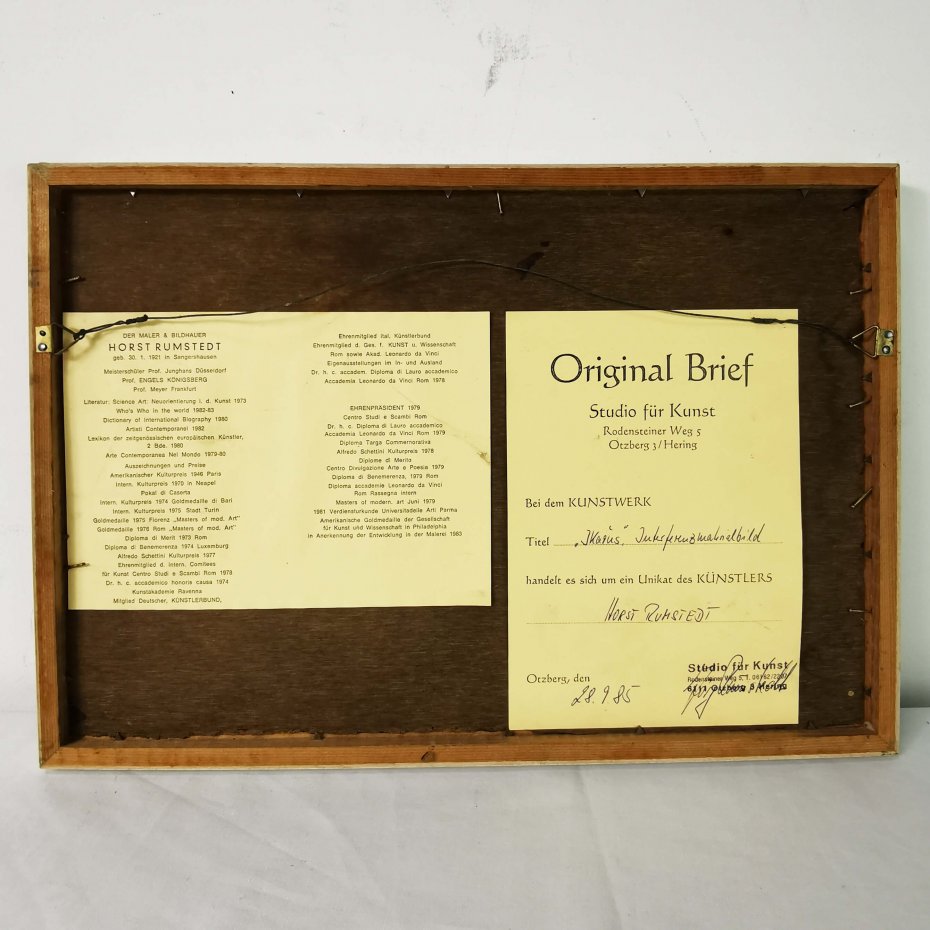 DER MALER & BILDHAUER
HORST RUMSTEDT
geb. 30. 1. 1921 in Sangershausen
Meisterschüler Prof. Junghans Düsseldorf
Prof. ENGELS KÖNIGSBERG
Prof. Meyer Frankfurt
Literatur: Science Art: Neuorientierung i. d. Kunst 1973
Who's Who in the world 1982-83
Dictionary of international Biography 1980
Artisti Contemporanei 1982
Lexikon der zeitgenössischen europäischen Künstler,
2 Bde. 1980
Arte Contemporanea Nel Mondo 1979-80
Auszeichnungen und Preise
Amerikanischer Kulturpreis 1946 Paris
Intern. Kulturpreis 1970 in Neapel
Pokal di Caserta
Intern. Kulturpreis 1974 Goldmedaille di Bari
Intern. Kulturpreis 1975 Stadt Turin
Goldmedaille 1975 Florenz „Masters of mod. Art"
Goldmedaille 1976 Rom „Masters of mod. Art"
Diploma di Merit 1973 Rom
Diploma di Benemerenza 1974 Luxemburg
Alfredo Schettini Kulturpreis 1977
Ehrenmitglied d. intern. Comitees
für Kunst Centro Studi e Scambi Rom 1978
Dr. h. c. accademico honoris causa 1974
Kunstakademie Ravenna
Mitglied Deutscher, KÜNSTLERBUND,
Ehrenmitglied ital. Künstlerbund
Ehrenmitglied d. Ges. f. KUNST u. Wissenschaft
Rom sowie Akad. Leonardo da Vinci
Eigenausstellungen im In- und Ausland
Dr. h. c. accadem. Diploma di Lauro accademico
Accademia Leonardo da Vinci Rom 1978
EHRENPRÄSIDENT 1979
Centro Studi e Scambi Rom
Dr. h. c. Diploma di Lauro accademico
Accademia Leonardo da Vinci Rom 1979
Diploma Targa Commemorativa
Alfredo Schettini Kulturpreis 1978
Diplome di Merito
Centro Divulgazione Arte e Poesia 1979
Diploma di Benemerenza, 1979 Rom
Diploma accademie Leonardo da Vinci
Rom Rassegna intern
Masters of modern. art Juni 1979
1981 Verdiensturkunde Universitadelle Arti Parma
Amerikanische Goldmedaille der Gesellschaft
für Kunst und Wissenschaft in Philadelphia
in Anerkennung der Entwicklung in der Malerei 1983
Original Brief
Studio für Kunst
Rodensteiner Weg 5
Otzberg 3/Hering
Bei dem KUNSTWERK
Titel „Ikarus" Interferenzmahnelbild
handelt es sich um ein Unikat des KÜNSTLERS
HORST RUMSTEDT
Otzberg, den
28.9.85
Studio für Kunst
Rodensteiner Weg 5, T. 06162/
6111 Otzberg 3 Hering